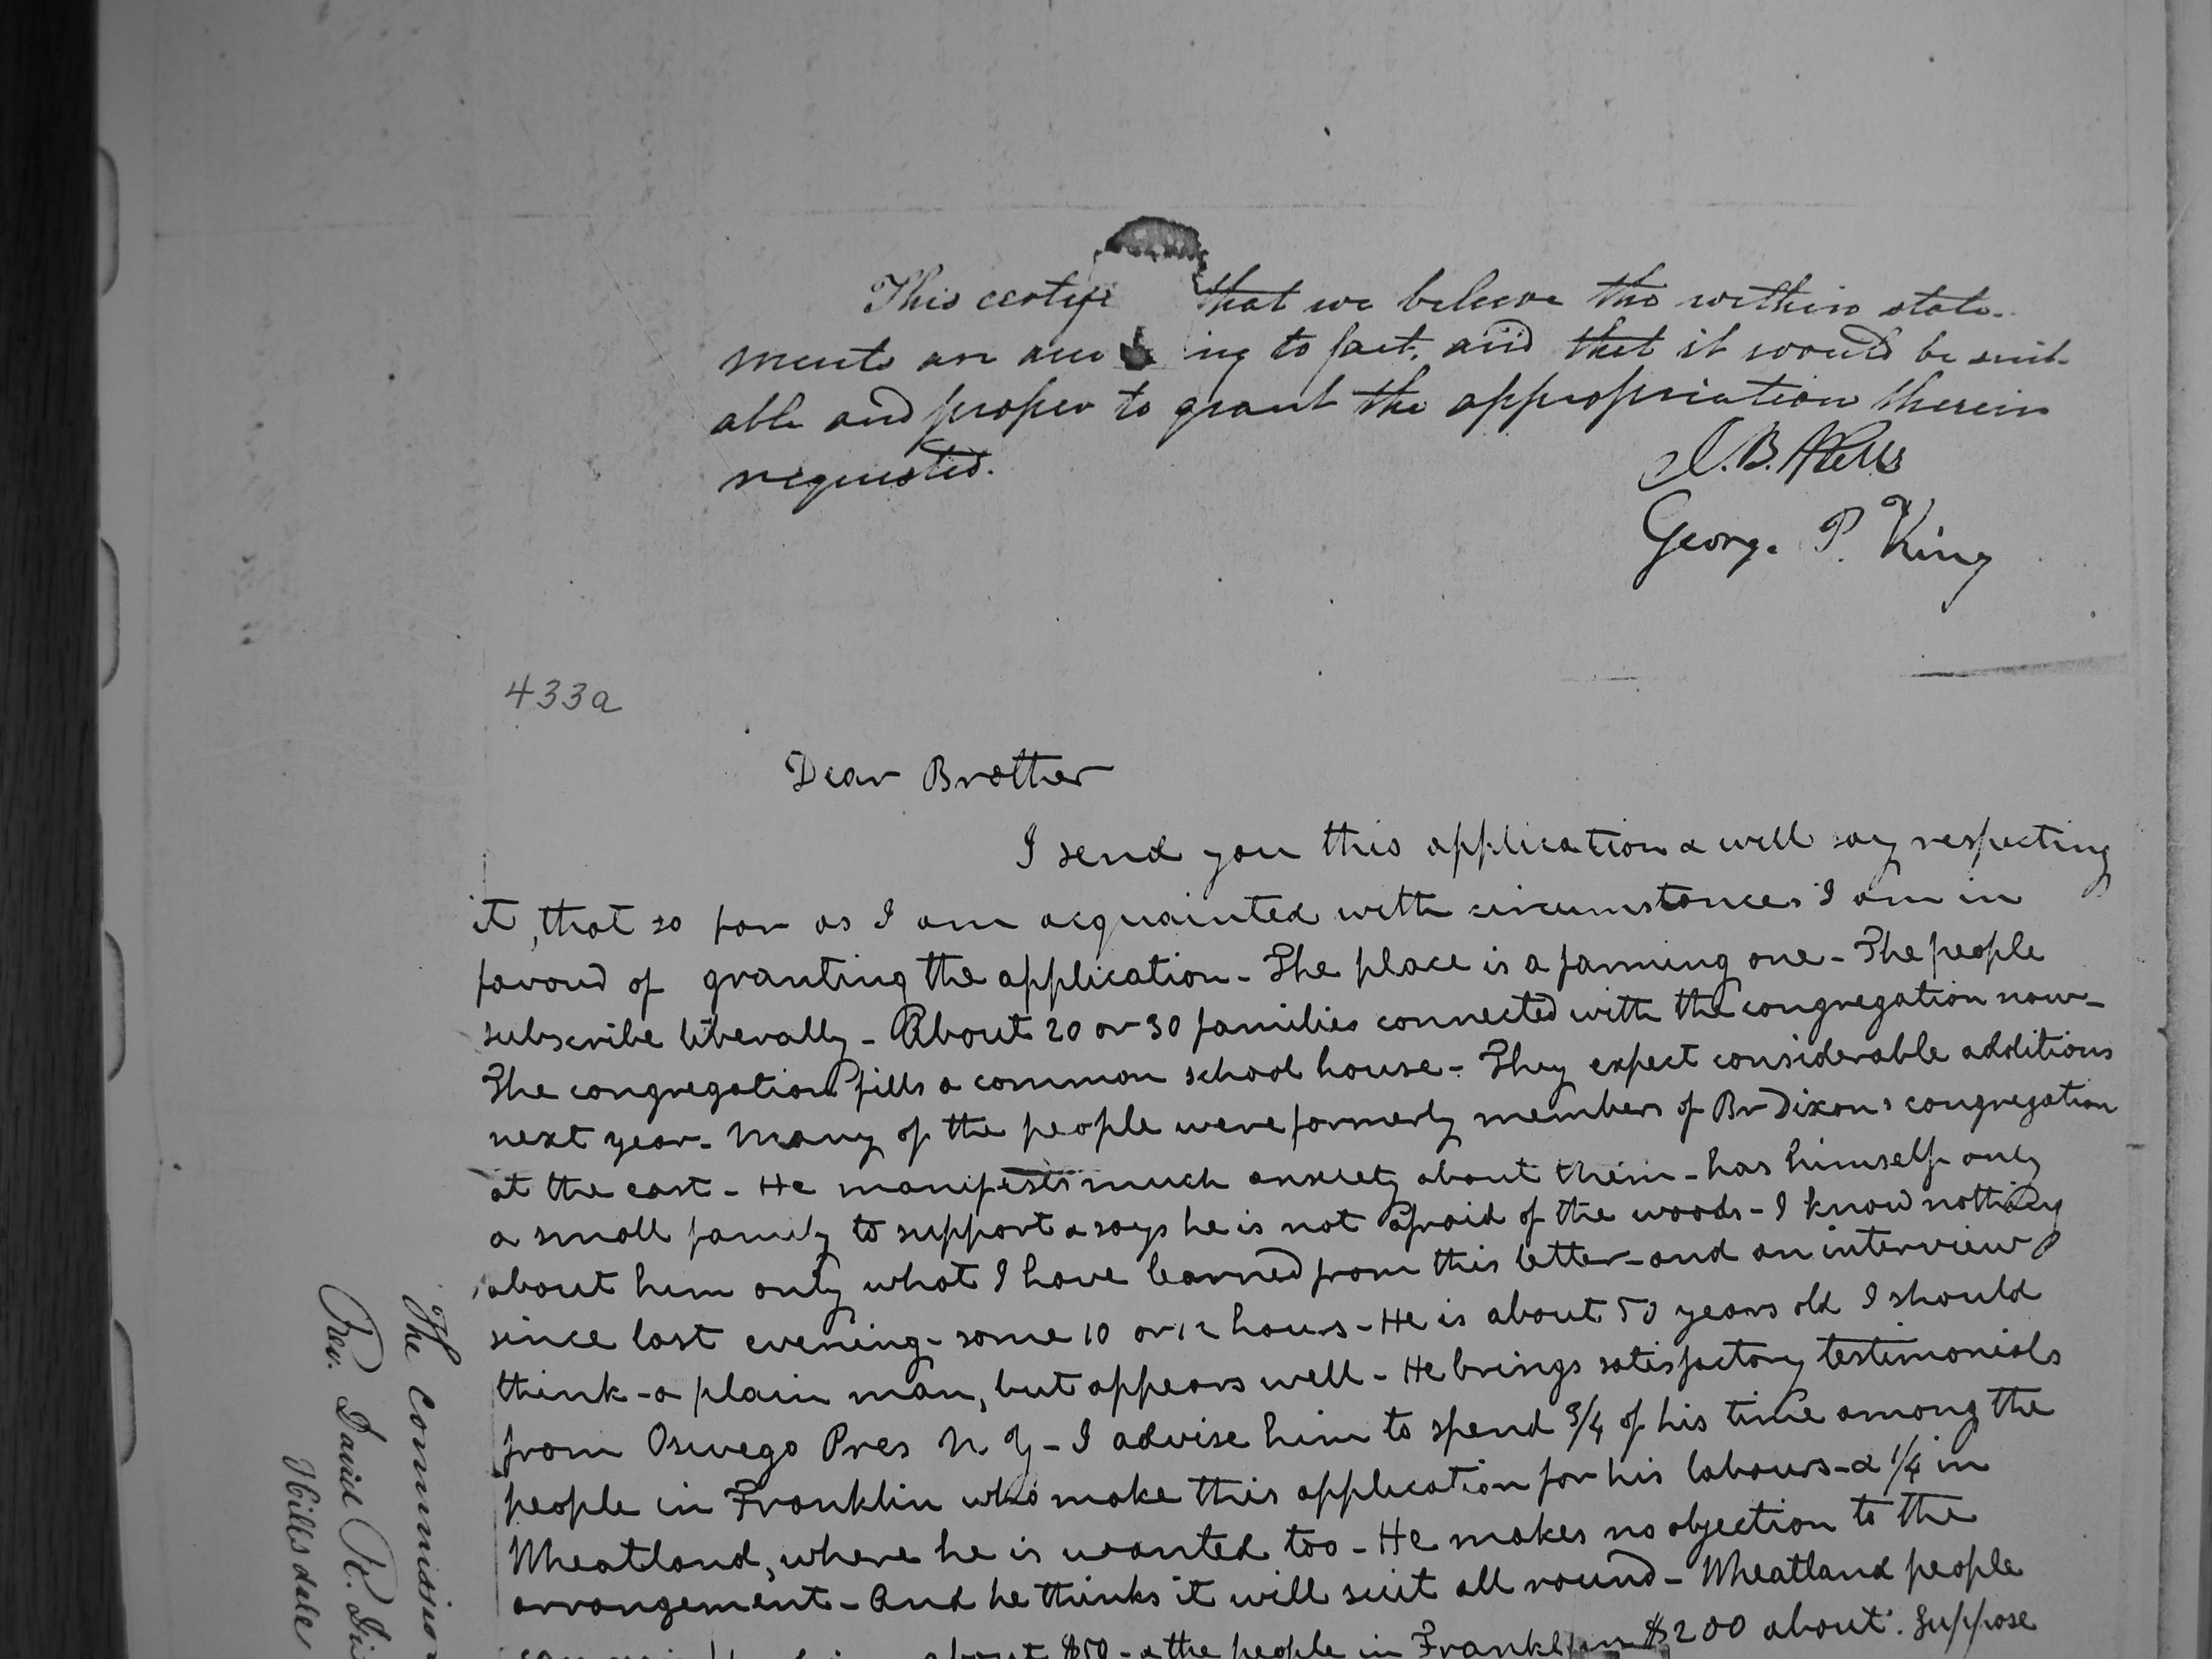 This certify that we believe the within state-
ments are acco ing to fact, and that it would be suit-
able and proper to grant the appropriation therein
requested.
B.
George P. King
433a
Dear Brother
I send you this application & will say respecting
it, that so far as I am acquainted with circumstances I am in
favour of granting the application - The place is a farming one - The people
subscribe liberally - About 20 or 30 families connected with the congregation now -
The congregation fills a common school house - They expect considerable additions
next year - Many of the people were formerly members of Br Dixons congregation
at the east - He manifests much anxiety about them - has himself only
a small family to support & says he is not afraid of the woods - I know nothing
about him only what I have learned from this letter - and an interview
since last evening - some 10 or 12 hours - He is about 50 years old I should
think - a plain man, but appears well - He brings satisfactory testimonials
from Oswego Pres N Y - I advise him to spend 3/4 of his time among the
people in Franklin who make this application for his labours - & 1/4 in
Wheatland, where he is wanted too - He makes no objection to the
arrangement - And he thinks it will suit all round - Wheatland people
about $50 - & the people in Franklin $200 about. Suppose
The commission
Rev. David R. Di
Hillsdale